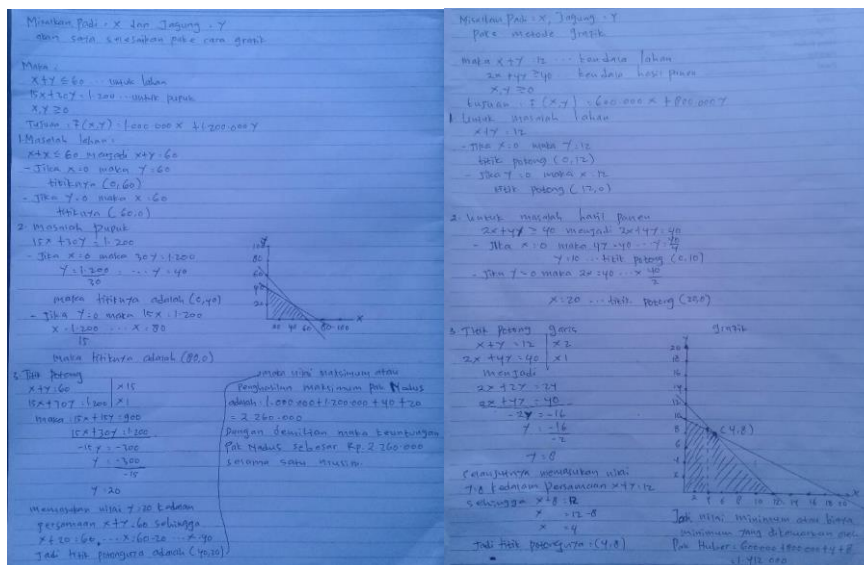 Misalkan Padi : X dan Jagung : Y
akan saya selesaikan pake cara grafik
Maka :
X + Y ≤ 60 ... untuk lahan
15X + 30Y = 1.200 ... untuk pupuk
X, Y ≥ 0
Tujuan : F(X,Y) = 1.000.000 X + 1.200.000 Y
1. Masalah lahan :
X + Y ≤ 60 menjadi X + Y = 60
- Jika X = 0 maka Y = 60
titiknya (0,60)
- Jika Y = 0 maka X = 60
titiknya (60,0)
2. masalah pupuk
15X + 30Y = 1.200
- Jika X = 0 maka 30Y = 1.200
Y = 1.200 ... Y = 40
30
maka titiknya adalah (0,40)
- Jika Y = 0 maka 15X = 1.200
X = 1.200 ... X = 80
15
maka titiknya adalah (80,0)
3. Titik Potong
X + Y = 60 | x15
15X + 30Y = 1200 | x1
maka : 15X + 15Y = 900
15X + 30Y = 1200
-15Y = -300
Y = -300
-15
Y = 20
memasukan nilai Y = 20 kedalam
persamaan X + Y = 60 sehingga
X + 20 = 60 ... X = 60 - 20 ... X = 40
Jadi titik potongnya adalah (40,20)
Y
80
60
40
20
20 40 60 80 100
X
maka nilai maksimum atau
Penghasilan maksimum pak Nadus
adalah : 1.000.000 + 1.200.000 + 40 + 20
= 2.260.000
Dengan demikian maka keuntungan
Pak Nadus sebesar Rp. 2.260.000
selama satu musim.
Misalkan Padi : X, Jagung : Y
Pake metode grafik
maka X + Y 12 ... kendala lahan
2X + 4Y ≥ 40 kendala hasil panen
X, Y ≥ 0
tujuan : F(X,Y) = 600.000 X + 800.000 Y
1. Untuk masalah lahan
X + Y = 12
- Jika X = 0 maka Y = 12
titik potong (0,12)
- Jika Y = 0 maka X = 12
titik potong (12,0)
2. Untuk masalah hasil panen
2X + 4Y ≥ 40 menjadi 2X + 4Y = 40
- Jika X = 0 maka 4Y = 40 ... Y = 40
4
Y = 10 ... titik potong (0,10)
- Jika Y = 0 maka 2X = 40 ... X = 40
2
X = 20 ... titik potong (20,0)
3. Titik potong garis
X + Y = 12 | x2
2X + 4Y = 40 | x1
menjadi
2X + 2Y = 24
2X + 4Y = 40
-2Y = -16
Y = -16
-2
Y = 8
selanjutnya memasukan nilai
Y = 8 kedalam persamaan X + Y = 12
sehingga X + 8 = 12
X = 12 - 8
X = 4
Jadi titik potongnya = (4,8)
grafik
Y
20
18
16
14
12
10
8
6
4
2
(4,8)
2 4 6 8 10 12 14 16 18 20
X
Jadi nilai minimum atau biaya
minimum yang dikeluarkan oleh
Pak Huber = 600.000 + 800.000 + 4 + 8
= 1.412.000